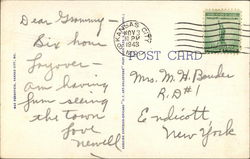 Dear Grammy –
Six hour
layover –
am having
fun seeing
the town
Love
Newell
KANSAS CITY
NOV 3
PM
1943
POST CARD
Mrs. M. H. Bender
R.D #1
Endicott
New York